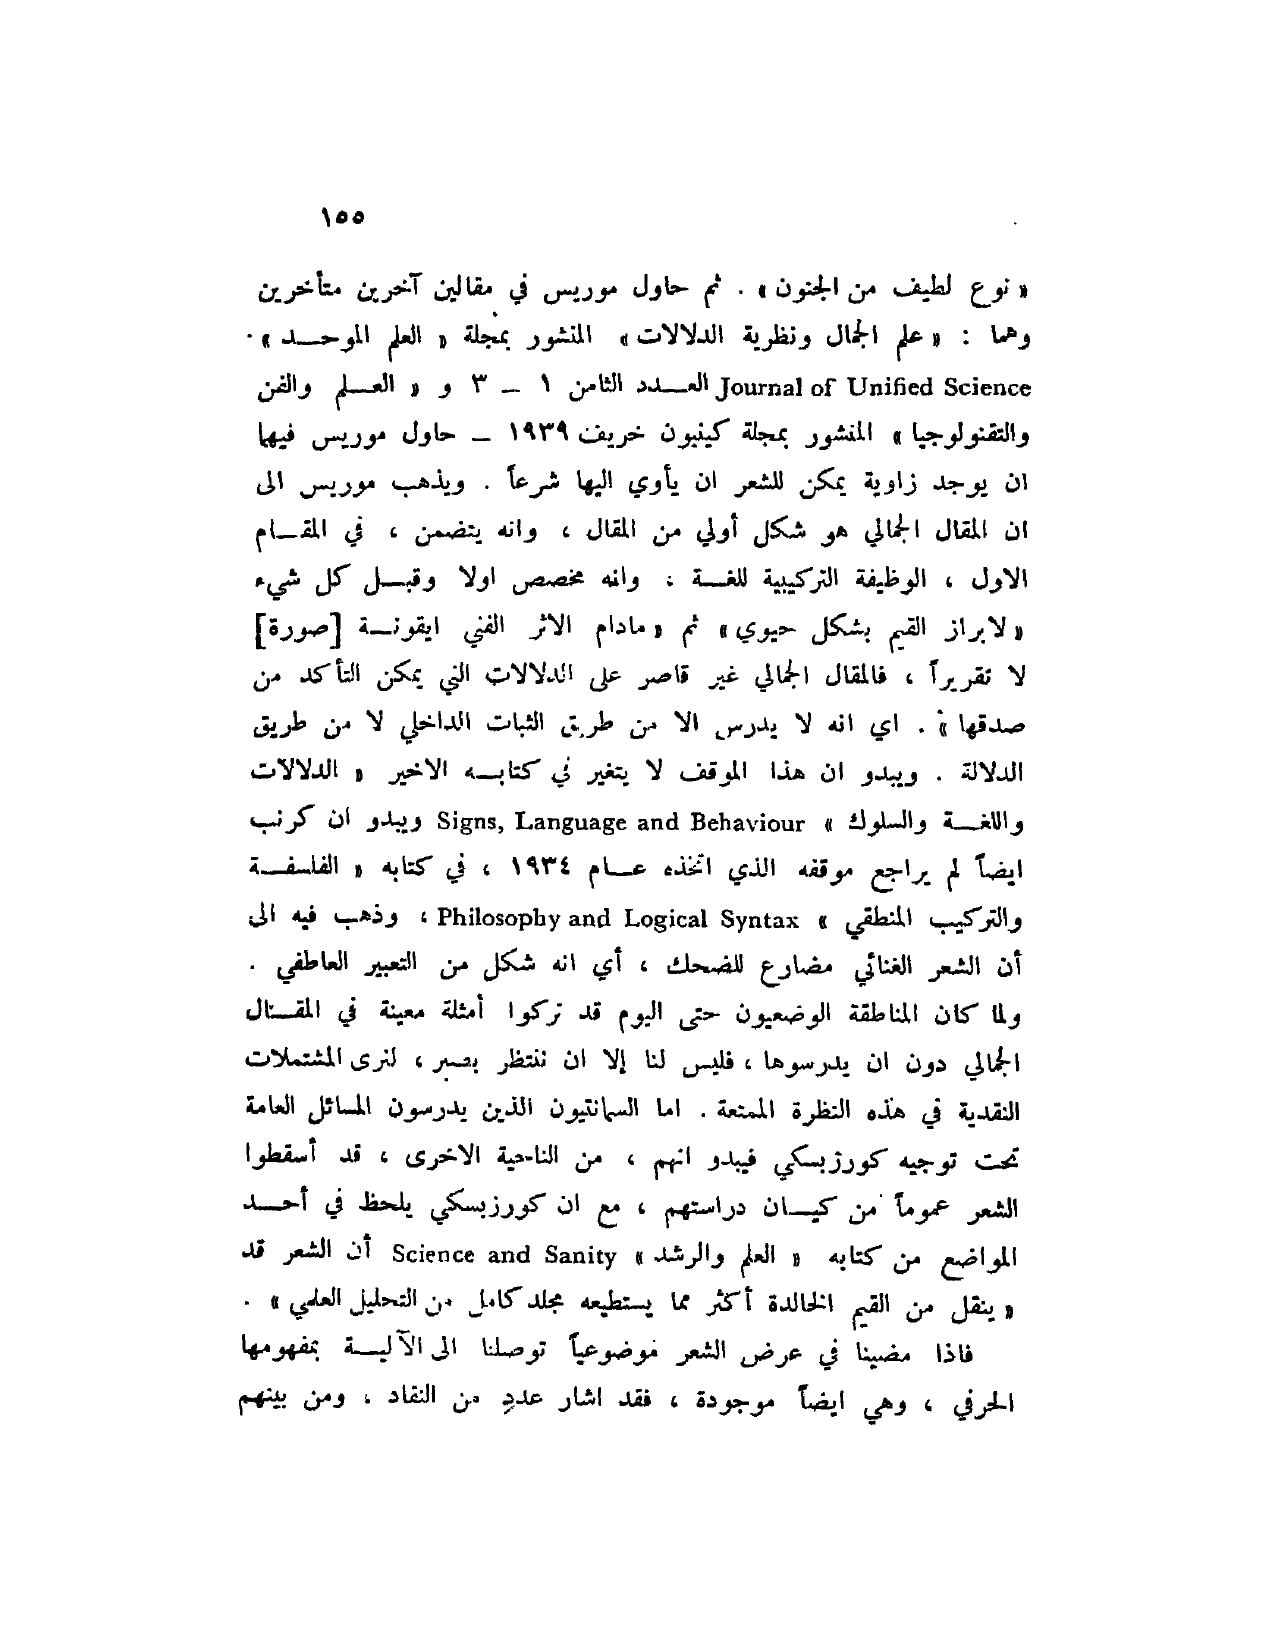 ١٥٥
« نوع لطيف من الجنون » . ثم حاول موريس في مقالين آخرين متأخرين
وهما : « علم الجمال ونظرية الدلالات » المنشور بمجلة « العلم الموحـــد » .
Journal of Unified Science العـــدد الثامن ١ – ٣ و « العـــلم والفن
والتقنولوجيا » المنشور بمجلة كينيون خريف ١٩٣٩ – حاول موريس فيها
ان يوجد زاوية يمكن للشعر ان يأوي اليها شرعاً . ويذهب موريس الى
ان المقال الجمالي هو شكل أولي من المقال ، وانه يتضمن ، في المقـــام
الاول ، الوظيفة التركيبية للغـــة ، وانه مخصص اولا وقبـــل كل شيء
« لابراز القيم بشكل حيوي » ثم « مادام الاثر الفني ايقونـــة [صورة]
لا تقريراً ، فالمقال الجمالي غير قاصر على الدلالات التي يمكن التأكد من
صدقها » . اي انه لا يدرس الا من طريق الثبات الداخلي لا من طريق
الدلالة . ويبدو ان هذا الموقف لا يتغير في كتابـــه الاخير « الدلالات
واللغـــة والسلوك » Signs, Language and Behaviour ويبدو ان كرنب
ايضاً لم يراجع موقفه الذي اتخذه عـــام ١٩٣٤ ، في كتابه « الفلسفـــة
والتركيب المنطقي » Philosophy and Logical Syntax ، وذهب فيه الى
أن الشعر الغنائي مضارع للضحك ، أي انه شكل من التعبير العاطفي .
ولما كان المناطقة الوضعيون حتى اليوم قد تركوا أمثلة معينة في المقـــال
الجمالي دون ان يدرسوها ، فليس لنا إلا ان ننتظر بصبر ، لنرى المشتملات
النقدية في هذه النظرة الممتعة . اما السمانتيون الذين يدرسون المسائل العامة
تحت توجيه كورزبسكي فيبدو انهم ، من الناحية الاخرى ، قد أسقطوا
الشعر عموماً من كيـــان دراستهم ، مع ان كورزبسكي يلحظ في أحـــد
المواضع من كتابه « العلم والرشد » Science and Sanity أن الشعر قد
« ينقل من القيم الخالدة أكثر مما يستطيعه مجلد كامل من التحليل العلمي » .
فاذا مضينا في عرض الشعر موضوعياً توصلنا الى الآليـــة بمفهومها
الحرفي ، وهي ايضاً موجودة ، فقد اشار عددٍ من النقاد ، ومن بينهم